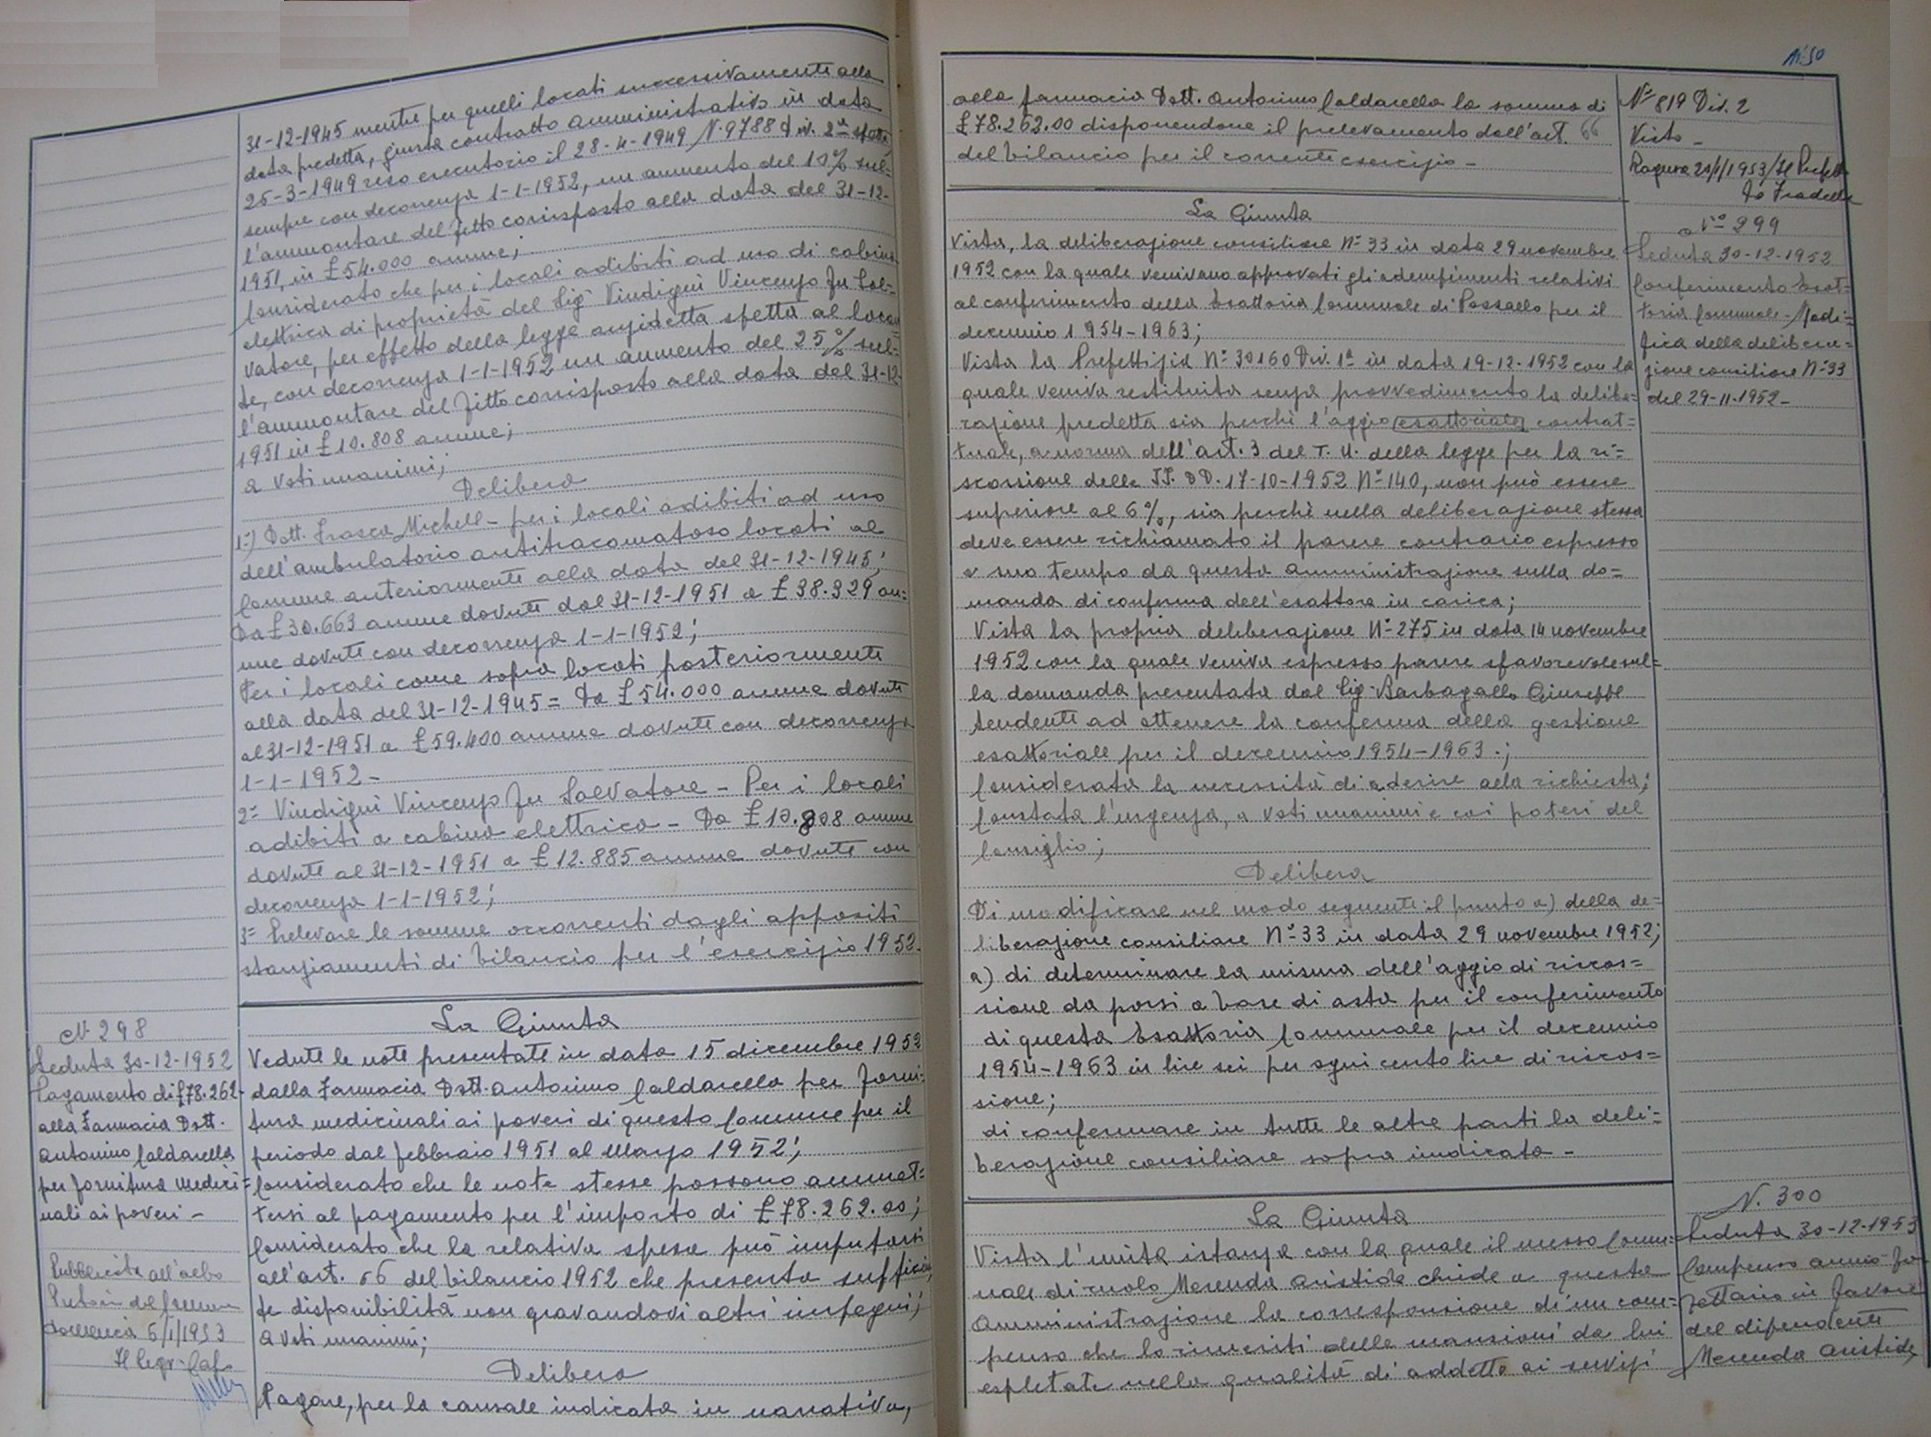 31-12-1945 mentre per quelli locati successivamente alla
data predetta, giusta contratto amministrativo in data
25-3-1949 reso esecutorio il 28-4-1949 N. 9788 Div. 2ª spetta
sempre con decorrenza 1-1-1952, un aumento del 10% sul=
l'ammontare del fitto corrisposto alla data del 31-12-
1951, in £ 54.000 annue;
Considerato che per i locali adibiti ad uso di cabina
elettrica di proprietà del Sig. Vindigni Vincenzo fu Sal=
vatore, per effetto della legge anzidetta spetta al loca
te, con decorrenza 1-1-1952 un aumento del 25% sul=
l'ammontare del fitto corrisposto alla data del 31-12
1951 in £ 10.808 annue;
a voti unanimi;
Delibera
1=) Dott. Frasca Michell - per i locali adibiti ad uso
dell'ambulatorio antitracomatoso locati al
Comune anteriormente alla data del 31-12-1945;
Da £ 30.663 annue dovute dal 31-12-1951 a £ 38.329 an=
nue dovute con decorrenza 1-1-1952;
Per i locali come sopra locati posteriormente
alla data del 31-12-1945 = Da £ 54.000 annue dovute
al 31-12-1951 a £ 59.400 annue dovute con decorrenza
1-1-1952 -
2= Vindigni Vincenzo fu Salvatore - Per i locali
adibiti a cabina elettrica - Da £ 10.808 annue
dovute al 31-12-1951 a £ 12.885 annue dovute con
decorrenza 1-1-1952;
3= Prelevare le somme occorrenti dagli appositi
stanziamenti di bilancio per l'esercizio 1952.
N. 298
Seduta 30-12-1952
Pagamento di £ 78.262-
alla Farmacia Dott.
Antonino Caldarella
per fornitura medici=
nali ai poveri -
Pubblicata all'albo
Pretorio del Comune
6/1/1953
Il Segr.
La Giunta
Vedute le note presentate in data 15 dicembre 1952
dalla Farmacia Dott. Antonino Caldarella per forni=
tura medicinali ai poveri di questo Comune per il
periodo dal febbraio 1951 al Marzo 1952;
Considerato che le note stesse possono ammet=
tersi al pagamento per l'importo di £ 78.262.00;
Considerato che la relativa spesa può imputarsi
all'art. 66 del bilancio 1952 che presenta sufficien
te disponibilità non gravandovi altri impegni;
a voti unanimi;
Delibera
Pagare, per la causale indicata in narrativa,
N: 50
alla farmacia Dott. Antonino Caldarella la somma di
£ 78.262.00 disponendone il prelevamento dall'art. 66
del bilancio per il corrente esercizio -
N° 819 Div. 2
Visto -
Ragusa 20/1/1953 / Il Prefetto
La Giunta
Vista, la deliberazione consiliare N° 33 in data 29 novembre
1952 con la quale venivano approvati gli adempimenti relativi
al conferimento della Esattoria Comunale di Pozzallo per il
decennio 1954-1963;
Vista la Prefettizia N° 30160 Div. 1ª in data 19-12-1952 con la
quale veniva restituita senza provvedimento la delibe-
razione predetta sia perchè l'aggio esattoriale contrat=
tuale, a norma dell'art. 3 del T. U. della legge per la ri=
scossione delle II. DD. 17-10-1952 N° 140, non può essere
superiore al 6%, sia perchè nella deliberazione stessa
deve essere richiamato il parere contrario espresso
a suo tempo da questa amministrazione sulla do=
manda di conferma dell'esattore in carica;
Vista la propria deliberazione N° 275 in data 14 novembre
1952 con la quale veniva espresso parere sfavorevole sul=
la domanda presentata dal Sig. Barbagallo Giuseppe
tendente ad ottenere la conferma della gestione
esattoriale per il decennio 1954-1963.;
Considerata la necessità di aderire alla richiesta;
Constata l'urgenza, a voti unanimi e coi poteri del
Consiglio;
Delibera
Di modificare nel modo seguente il punto a) della de=
liberazione consiliare N° 33 in data 29 novembre 1952;
a) di determinare la misura dell'aggio di riscos=
sione da porsi a base di asta per il conferimento
di questa Esattoria Comunale per il decennio
1954-1963 in lire sei per ogni cento lire di riscos=
sione;
di confermare in tutte le altre parti la deli=
berazione consiliare sopra indicata -
N° 299
Seduta 30-12-1952
Conferimento Esat=
toria Comunale - Modi=
fica della delibera=
zione consiliare N° 33
del 29-11-1952 -
La Giunta
Vista l'unita istanza con la quale il messo Comu=
nale di ruolo Merenda Aristide chiede a questa
Amministrazione la corresponsione di un com=
penso che lo rimeriti delle mansioni da lui
espletate nella qualità di addetto ai servizi
N. 300
Seduta 30-12-1953
Compenso annuo for
fettario in favore
del dipendente
Merenda Aristide